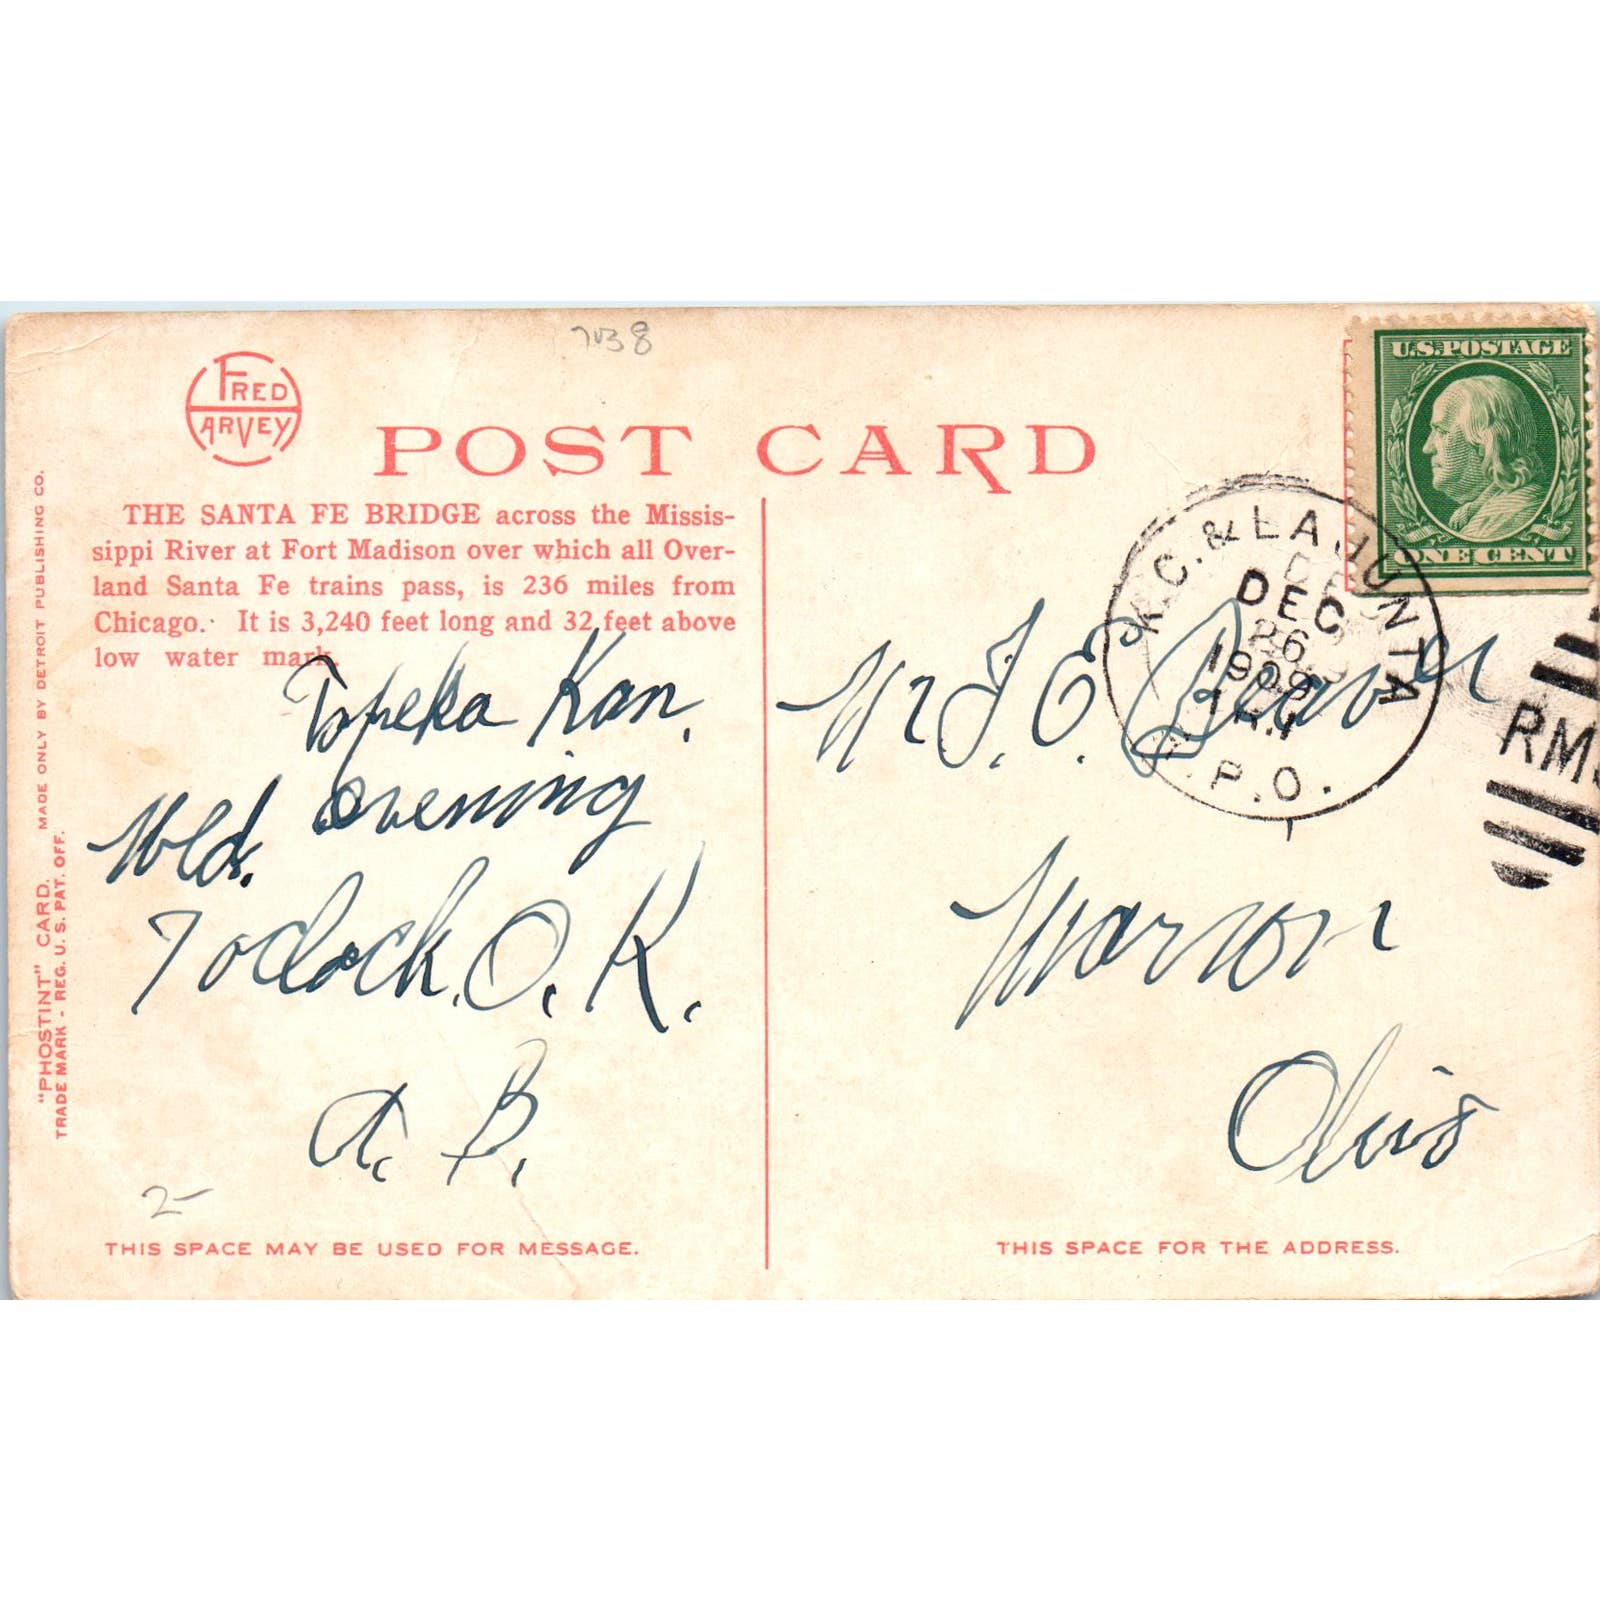 7038
FRED
HARVEY
POST CARD
THE SANTA FE BRIDGE across the Missis-
sippi River at Fort Madison over which all Over-
land Santa Fe trains pass, is 236 miles from
Chicago. It is 3,240 feet long and 32 feet above
low water mark.
"PHOSTINT" CARD. MADE ONLY BY DETROIT PUBLISHING CO.
TRADE MARK - REG. U. S. PAT. OFF.
Topeka Kan.
Wed. evening
7 oclock. O. K.
A. B.
2-
THIS SPACE MAY BE USED FOR MESSAGE.
U.S. POSTAGE
ONE CENT
K.C. & LA JUNTA
DEC
26
1909
R.P.O.
RMS
Mr J. E. Beaver
Marron
Ohio
THIS SPACE FOR THE ADDRESS.